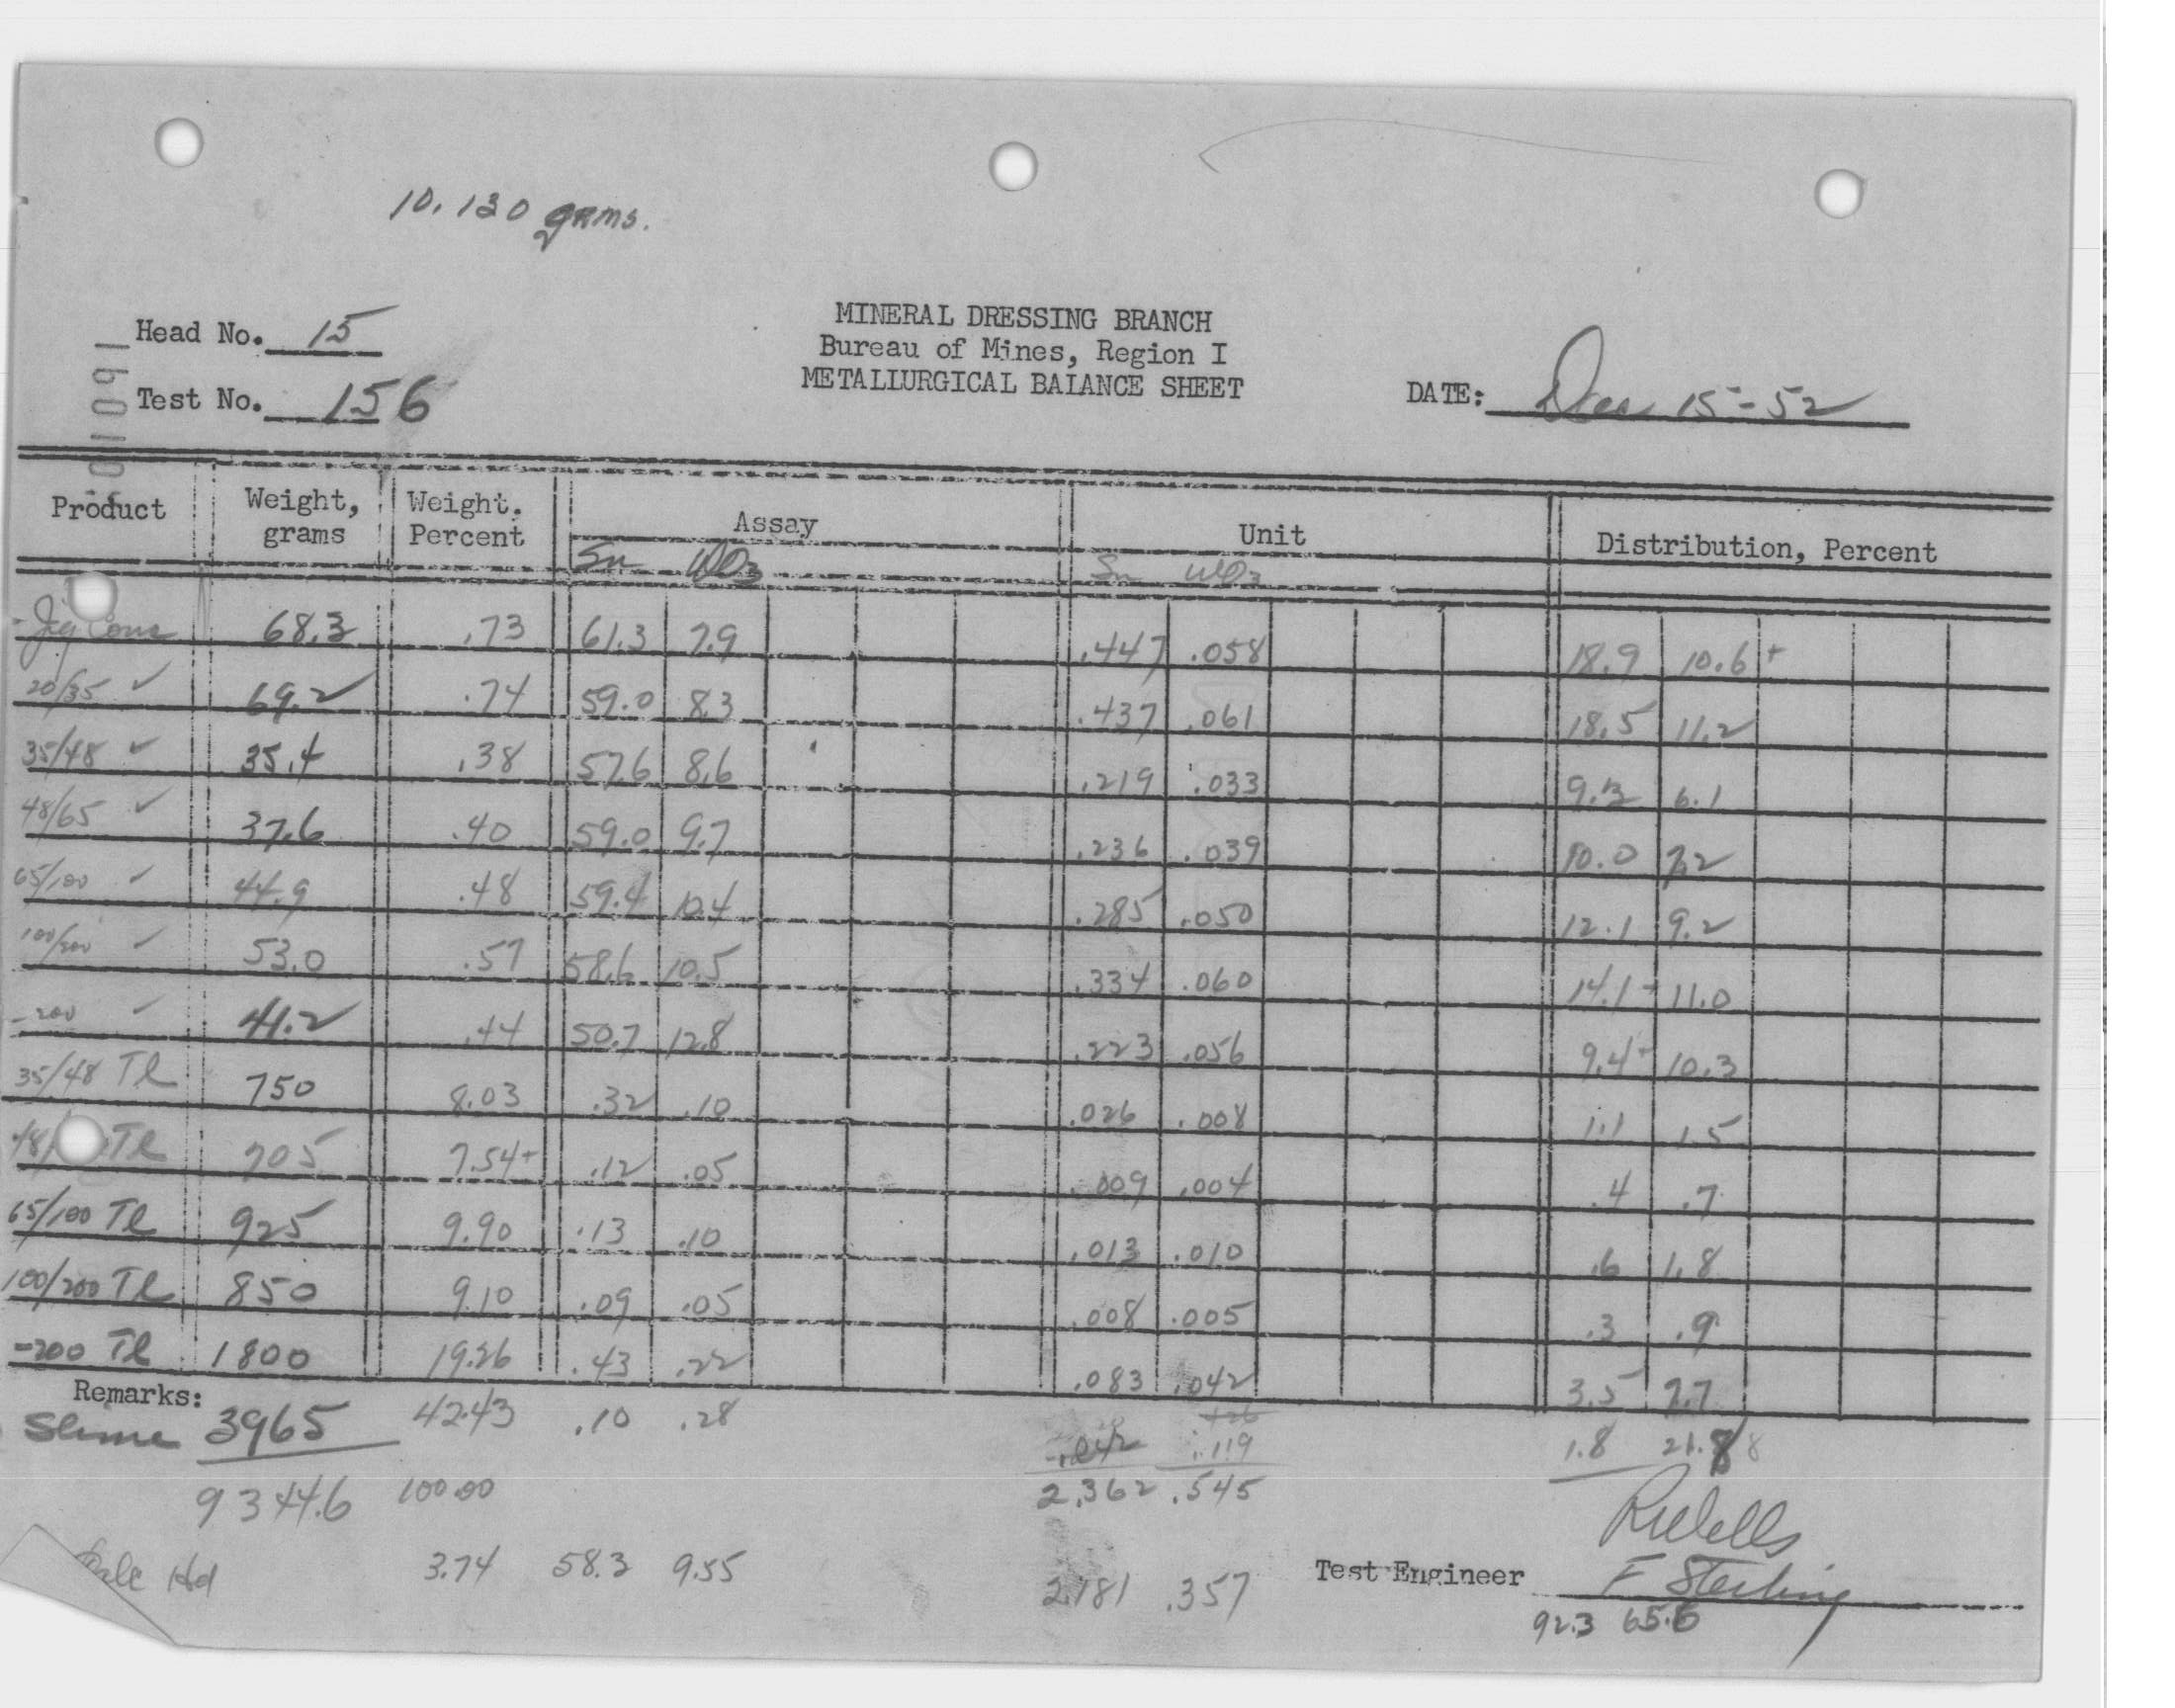 10.130 grms.
Head No. 15
Test No. 156
MINERAL DRESSING BRANCH
Bureau of Mines, Region I
METALLURGICAL BALANCE SHEET
DATE: Dec 15-52
Product Weight, grams Weight, Percent Assay Unit Distribution, Percent
Sn WO3 Sn WO3
Jig Conc 68.3 .73 61.3 7.9 .447 .058 18.9 10.6+
20/35 ✓ 69.2 .74 59.0 8.3 .437 .061 18.5 11.2
35/48 ✓ 35.4 .38 57.6 8.6 .219 .033 9.3 6.1
48/65 ✓ 37.6 .40 59.0 9.7 .236 .039 10.0 7.2
65/100 ✓ 44.9 .48 59.4 10.4 .285 .050 12.1 9.2
100/200 ✓ 53.0 .57 58.6 10.5 .334 .060 14.1- 11.0
-200 ✓ 41.2 .44 50.7 12.8 .223 .056 9.4- 10.3
35/48 Tl 750 8.03 .32 .10 .026 .008 1.1 1.5
48/ Tl 705 7.54+ .12 .05 .009 .004 .4 .7
65/100 Tl 925 9.90 .13 .10 .013 .010 .6 1.8
100/200 Tl 850 9.10 .09 .05 .008 .005 .3 .9
-200 Tl 1800 19.26 .43 .22 .083 .042 3.5 7.7
Remarks:
Slime 3965 42.43 .10 .28 .042 .119 1.8 21.8 8
9344.6 100.00 2.362 .545
Hd 3.74 58.3 9.55 2.181 .357
Test Engineer F Sterling
92.3 65.6